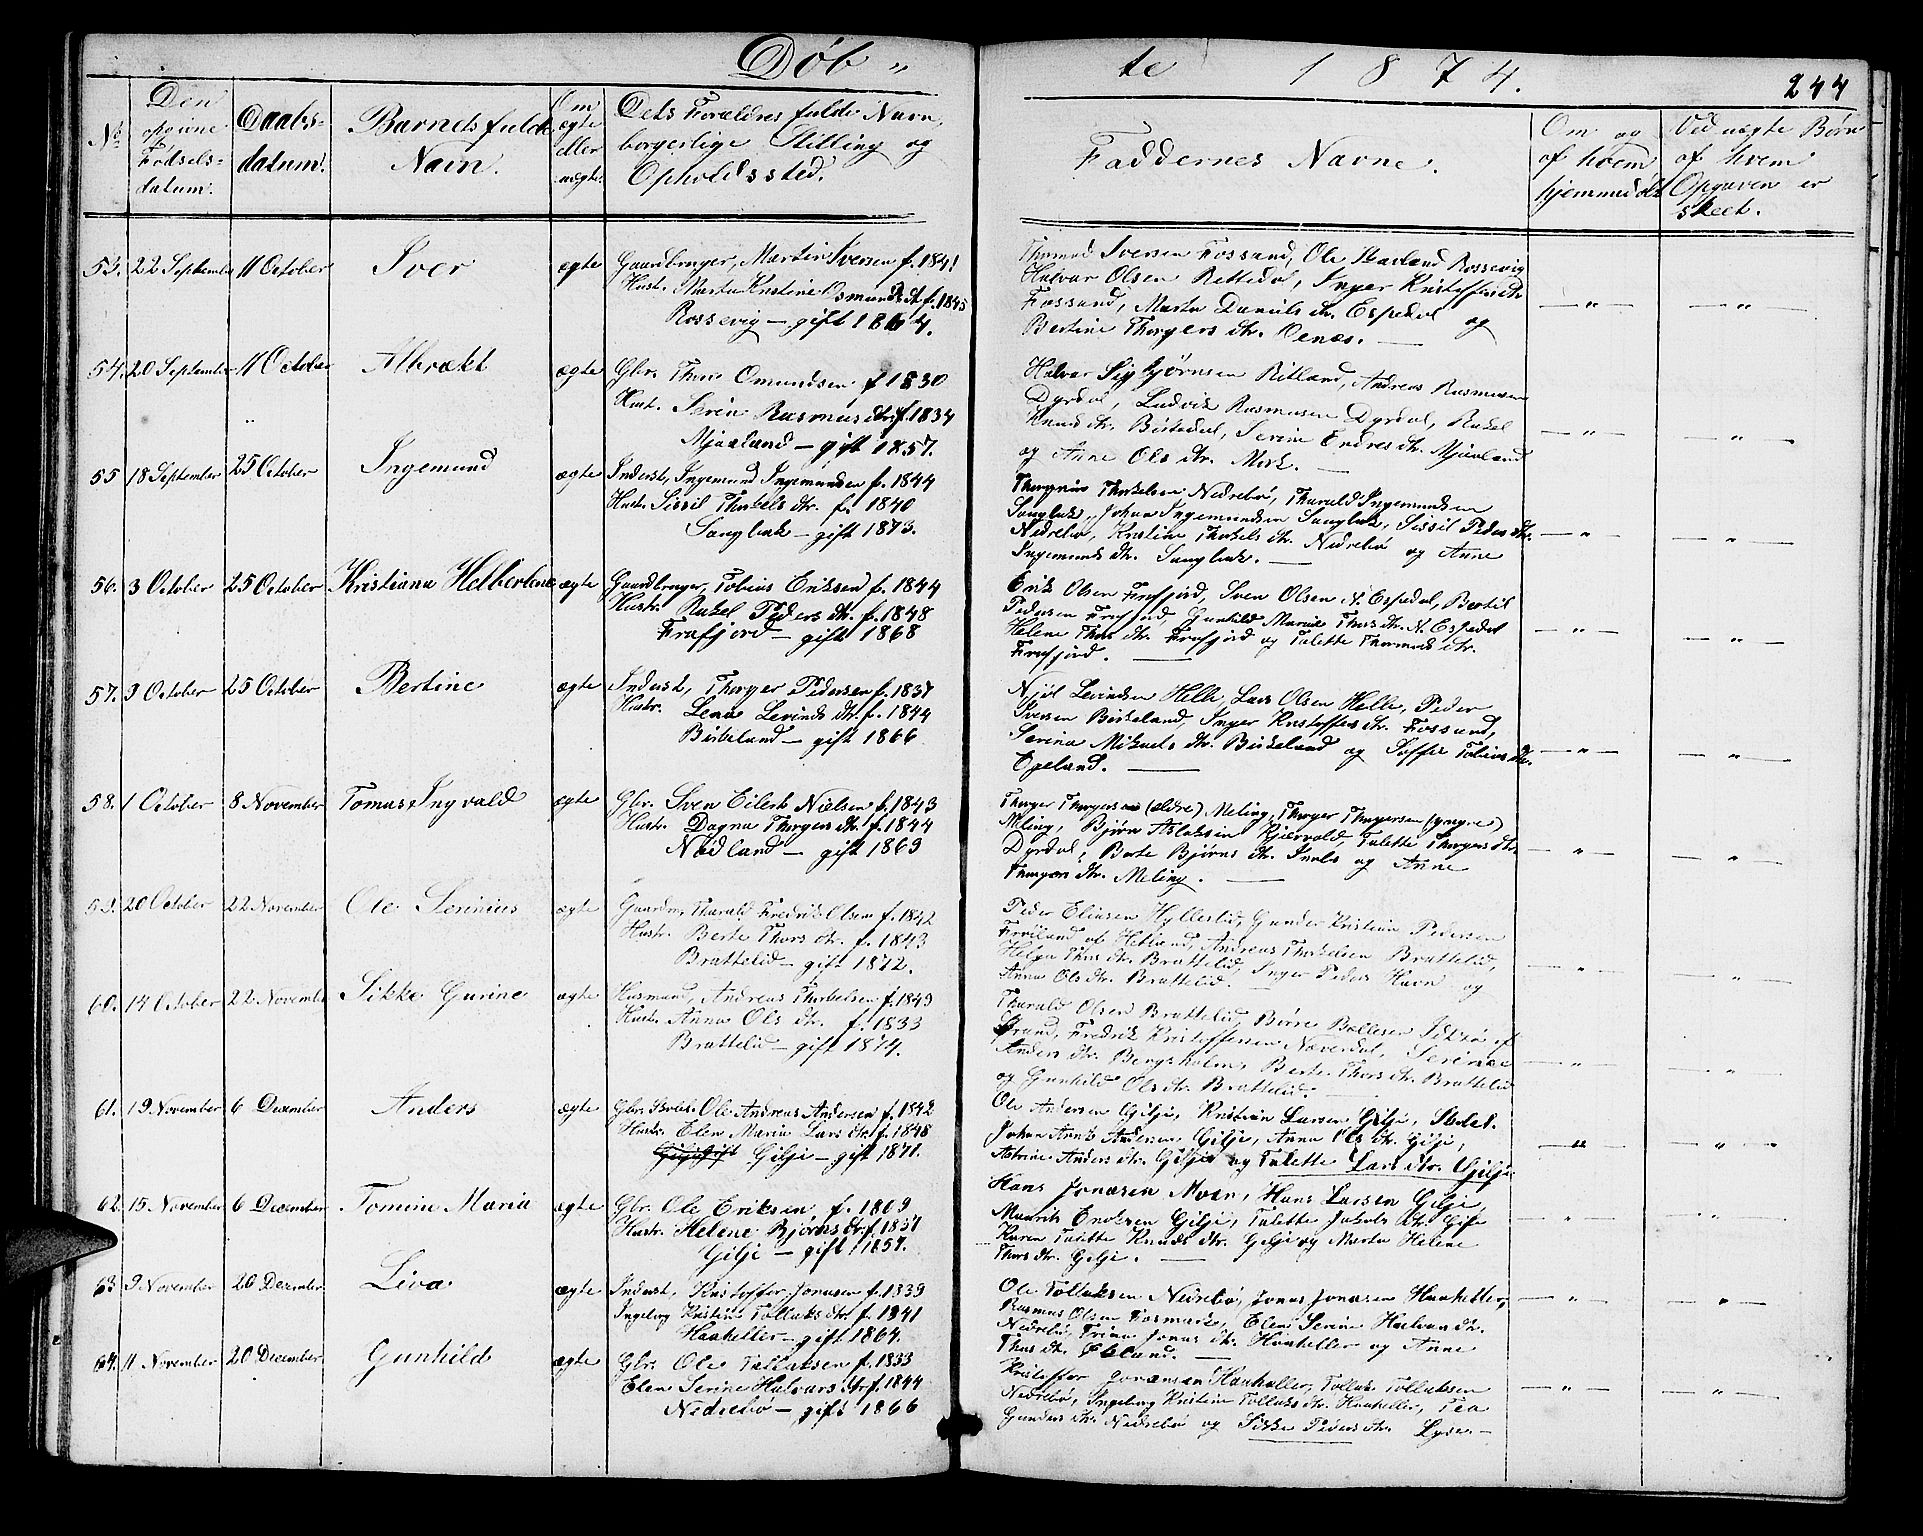 Døb "
te 1874.
244
No
Den opgivne Fødsels-datum.
Daabs-datum.
Barnets fulde Navn.
Om ægte eller uægte.
Dets Forældres fulde Navn, borgerlige Stilling og Opholdssted.
Faddernes Navne.
Om og af hvem hjemmedøbt
Ved uægte Børn af hvem Opgaven er skeet.
53. 22 September 11 October Iver ægte Gaardbruger, Martin Iversen f. 1841
Hust. Marta Kristine Osmundsdt. f. 1845
Rossevig — gift 1864.
Thormod Iversen Fossand, Ole Havland Rossevig
Halvar Olsen Rettedal, Inger Kristoffersdtr.
Fossand, Marta Daniels dtr. Espedal og
Bertine Thorgers dtr. Oenæs. —
54. 20 September 11 October Albrækt ægte Gbr. Thore Omundsen f 1830
Hust. Serin Rasmusdtr. f. 1834
Mjaaland — gift 1857.
Halvar Sigbjørnsen Ritland, Andreas Rasmusen
Dyrdal, Ludvik Rasmusen Dyrdal, Rakel
Knuds dtr. Birkedal, Serine Endres dtr. Mjaaland
og Anne Ols dtr. Mork. —
55 18 September 25 October Ingemund ægte Inderst, Ingemund Ingemundsen f. 1844
Hust. Sissil Thorkels dtr. f. 1840
Langbak — gift 1873.
Thorkelsen Nedrebø, Tharald Ingemundsen
Langbak, Johan Ingemundsen Langbak, Sissil Peders dtr.
Nedrebø, Kristine Thorkels dtr. Nedrebø og Anne
Ingemunds dtr. Langbak. —
56. 3 October 25 October Kristiana Helbertine ægte Gaardbruger, Tobias Eriksen f. 1844
Hustr. Rakel Peders dtr. f. 1848
Frafjord — gift 1868
Erik Olsen Frafjord, Sven Olsen N. Espedal, Bertil
Pedersen Frafjord, Gunhild Marie Thors dtr. N. Espedal
Helene Thors dtr. Frafjord og Talette Thormods dtr.
Frafjord. —
57. 9 October 25 October Bertine ægte Inderst, Thorger Pedersen f. 1837
Hustr. Lena Levinds dtr. f. 1844
Birkeland — gift 1866
Njøl Levindsen Helle, Lars Olsen Helle, Peder
Iversen Birkeland, Inger Kristoffers dtr. Fossand,
Serina Mikaels dtr. Birkeland og Soffie Tobias dtr.
Egeland. —
58. 1 October 8 November Tomas Ingvald ægte Gbr. Sven Eilert Nielsen f. 1843
Hustr. Dagna Thorgers dtr. f. 1844
Nødland — gift 1869
Thorger Thorgersen (ældre) Meling, Thorger Thorgersen (yngre)
Meling, Bjørn Aslaksen Kjærvold, Talette Thorgers dtr.
Dyrdal, Berte Bjørns dtr. og Anne
Thorgers dtr. Meling. —
59. 20 October 22 November Ole Serinius ægte Gaardm, Tharald Fredrik Olsen f. 1842
Hustr. Berte Thors dtr. f. 1843
Brattelid — gift 1872.
Peder Eliasen Hyllestid, Gunder Kristian Pedersen
Frøiland af Hetland, Andreas Thorkelsen Brattelid,
Helga Thors dtr. Brattelid, Inger Peders Havn og
Anna Ols dtr. Brattelid. —
60. 14 October 22 November Sikke Gurine ægte Husmand, Andreas Thorkelsen f. 1849
Hustr. Anna Ols dtr. f. 1833
Brattelid — gift 1874.
Tharald Olsen Brattelid, Børre Bollesen af
Strand, Fredrik Kristoffersen Næverdal, Serine
Anders dtr. Bergsholm, Berte Thors dtr. Brattelid
og Gunhild Ols dtr. Brattelid. —
61. 19 November 6 December Anders ægte Gbr. Ole Andreas Andersen f. 1842
Hustr. Elen Maria Lars dtr. f. 1848
Gilje — gift 1871.
Ole Andersen Gilje, Kristian Larsen Gilje,
Johan Andersen Gilje, Anna Ols dtr. Gilje,
Anders dtr. Gilje og Talette Lars dtr. Gilje.
62. 15 November 6 December Tomine Maria ægte Gbr. Ole Eriksen f. 1809
Hustr. Helene Bjørns dtr. f. 1837
Gilje — gift 1857.
Hans Jonasen Moen, Hans Larsen Gilje,
Maurits Enoksen Gilje, Talette Jakobs dtr. Gilje
Karen Talette Knuds dtr. Gilje og Marta Helene
Thors dtr. Gilje. —
63 9 November 20 December Liva ægte Inderst, Kristoffer Jonasen f. 1839
Ingeborg Kristine Tollaks dtr. f. 1841
Haaheller — gift 1864.
Ole Tollaksen Nedrebø, Jonas Jonasen Haaheller,
Rasmus Olsen Fosmark, Elen Serine Halvarsdtr.
Nedrebø, Trine Jonas dtr. Haaheller og Anne
Thors dtr. Ekland. —
64. 11 November 20 December Gunhild ægte Gbr. Ole Tollaksen f. 1833
Elen Serine Halvars dtr. f. 1844
Nedrebø — gift 1866
Kristoffer Jonasen Haaheller, Tollak Tollaksen
Nedrebø, Ingeborg Kristine Tollaks dtr. Haaheller, Tea
Gunders dtr. Nedrebø og Sikke Peders dtr. Lyse. —